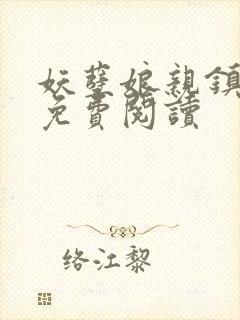 妖孽娘親鎮
免費閱讀
络江黎